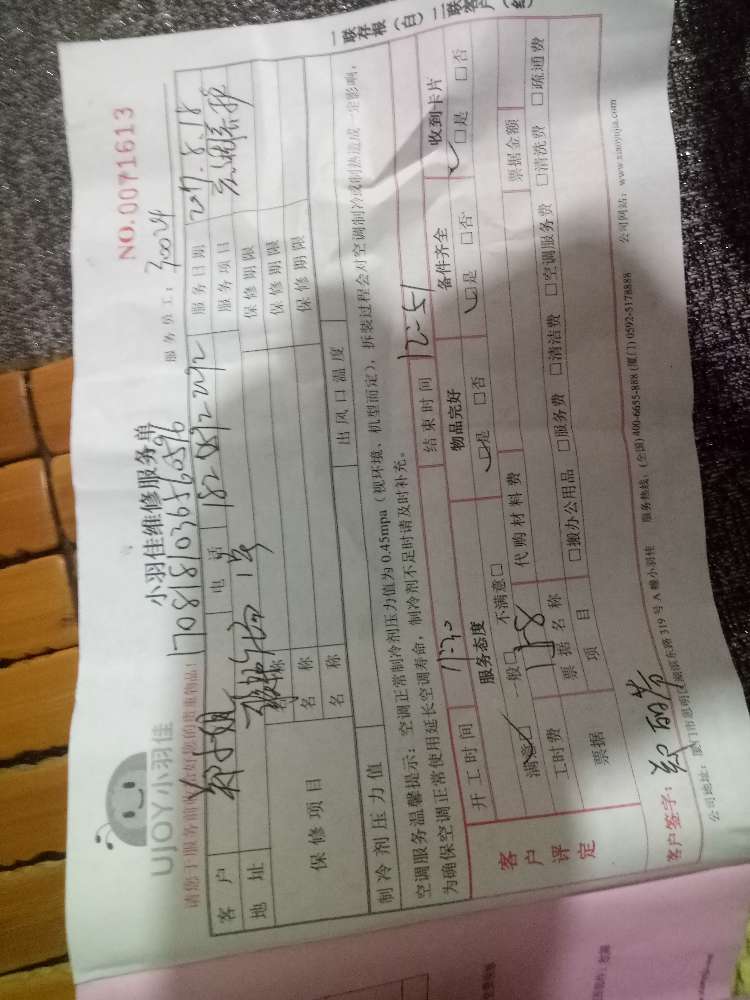 UJOY小羽佳
小羽佳维修服务单
NO.0071613
170818103656596
服务员工:
30024
客户
郑小姐
电话
服务日期
2017.8.18
地址
服务项目
保修项目
名称
保修期限
名称
保修期限
名称
保修期限
制冷剂压力值
出风口温度
空调服务温馨提示:空调正常制冷剂压力值为0.45mpa(视环境、机型而定),拆装过程会对空调制冷或制热造成一定影响,
为确保空调正常使用延长空调寿命,制冷剂不足时请及时补充。
开工时间
11:30
结束时间
12:51
客户评定
服务态度
物品完好
备件齐全
收到卡片
满意□ 一般□ 不满意□
□是 □否
□是 □否
□是 □否
工时费
代购材料费
票据金额
票据
票据名称
项目
□搬办公用品 □服务费 □清洁费 □空调服务费 □清洗费 □疏通费
客户签字:
郑丽芳
公司地址:厦门市思明区湖滨东路319号A幢小羽佳
服务热线:(全国)400-6655-888(厦门)0592-5178888
公司网站:www.xiaoyujia.com
一联存根(白)
二联客户(红)